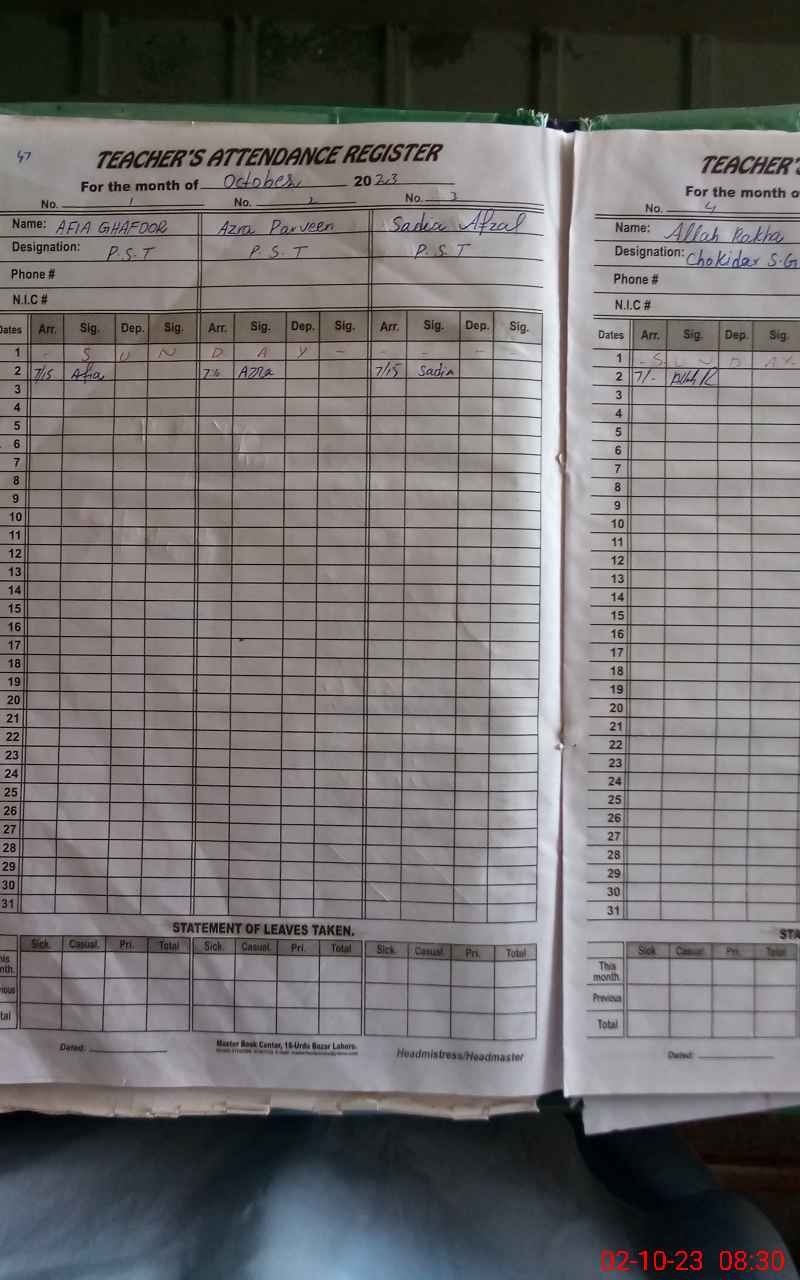 47
TEACHER'S ATTENDANCE REGISTER
For the month of October 2023
No. 1 No. 2 No. 3
Name: AFIA GHAFOOR Azra Parveen Sadia Afzal
Designation: P.S.T P.S.T P.S.T
Phone #
N.I.C #
Dates Arr. Sig. Dep. Sig. Arr. Sig. Dep. Sig. Arr. Sig. Dep. Sig.
1 - S U N D A Y - - - - -
2 7/15 Afia AZRa 7/15 Sadia
3
4
5
6
7
8
9
10
11
12
13
14
15
16
17
18
19
20
21
22
23
24
25
26
27
28
29
30
31
STATEMENT OF LEAVES TAKEN.
Sick. Casual. Pri. Total Sick. Casual. Pri. Total Sick. Casual. Pri. Total
his
nth.
vious
tal
Dated: Master Book Center, 16-Urdu Bazar Lahore. Headmistress/Headmaster
TEACHER'S
For the month o
No. 4
Name: Allah Rakha
Designation: Chokidar S.G
Phone #
N.I.C #
Dates Arr. Sig. Dep. Sig.
1 - S U N D A Y -
2 7/-
3
4
5
6
7
8
9
10
11
12
13
14
15
16
17
18
19
20
21
22
23
24
25
26
27
28
29
30
31
STA
Sick Casual. Pri. Total
This
month.
Previous
Total
Dated:
02-10-23 08:30